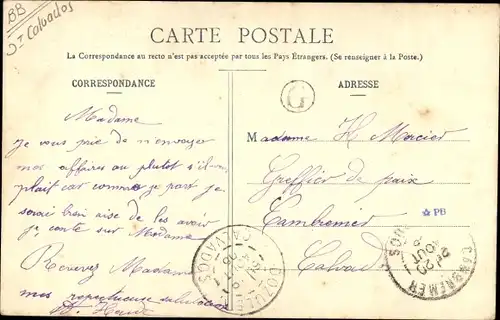 BB
Calvados
CARTE POSTALE
La Correspondance au recto n'est pas acceptée par tous les Pays Étrangers. (Se renseigner à la Poste.)
CORRESPONDANCE
ADRESSE
G
Madame
Je vous prie de m'envoyer
mes affaires au plutot s'il vous
plait car comme je part je
serai bien aise de les avoir
je conte sur Madame
Recevez Madame
mes respectueuse salutation
Madame H Mercier
Greffier de paix
Cambremer
Calvad
PB
DOZULE
CALVADOS
CAMBREMER
20
AOUT